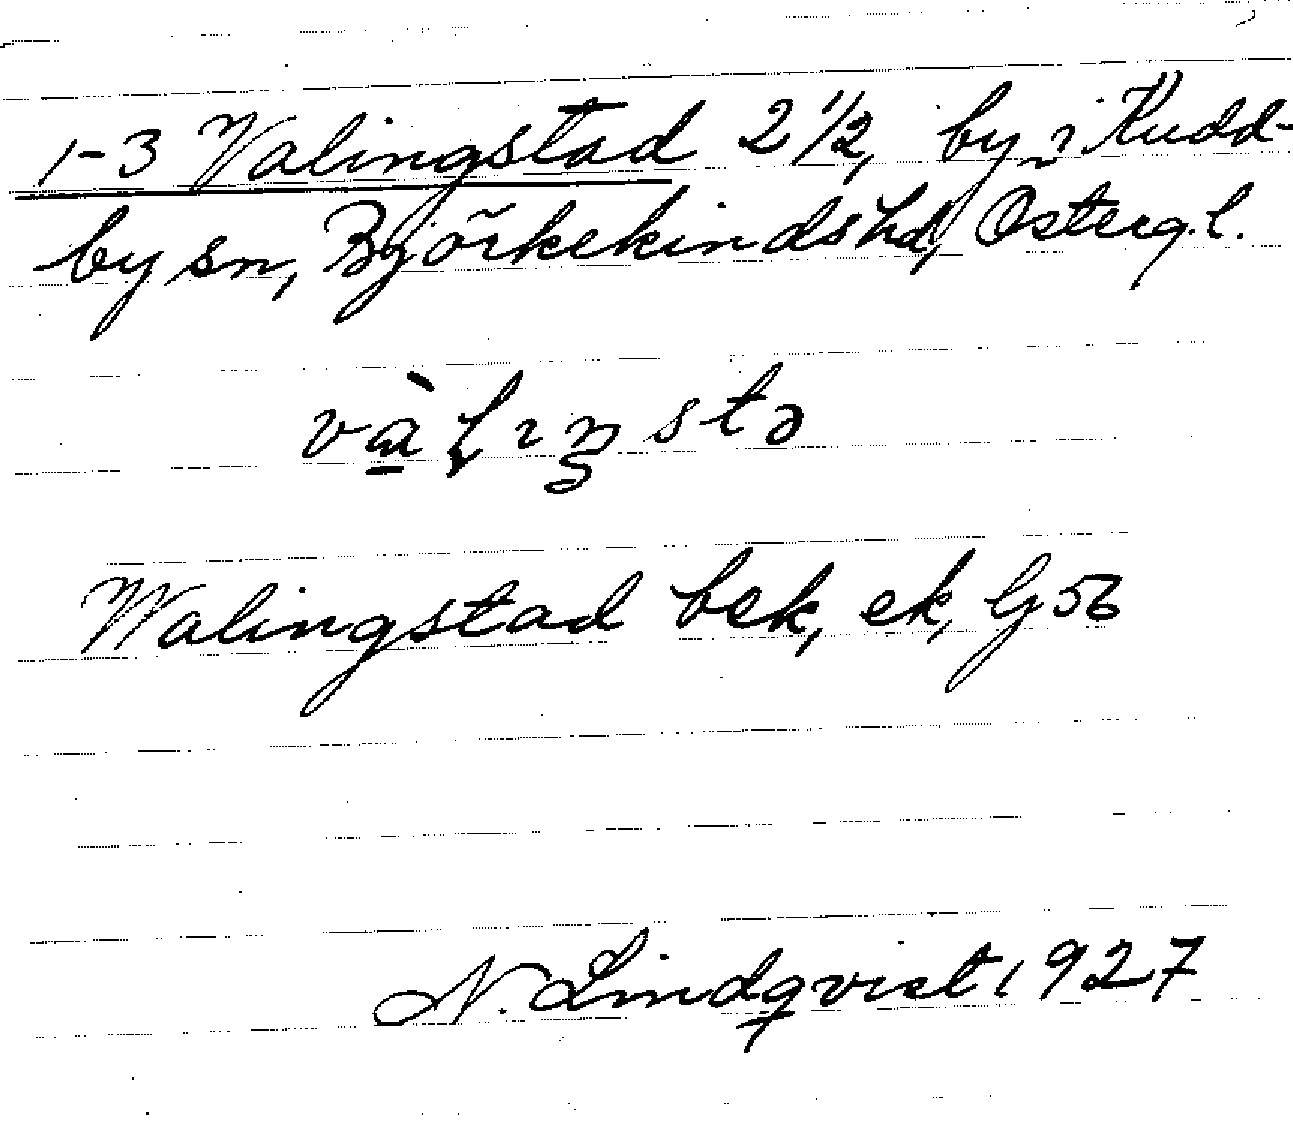 1-3 Valingstad 2 1/2, by i Kudd-
by sn, Björkekinds hd, Östergl.
và̱łıŋstə
Walingstad bek, ek, Gj 56
N. Lindqvist 1927